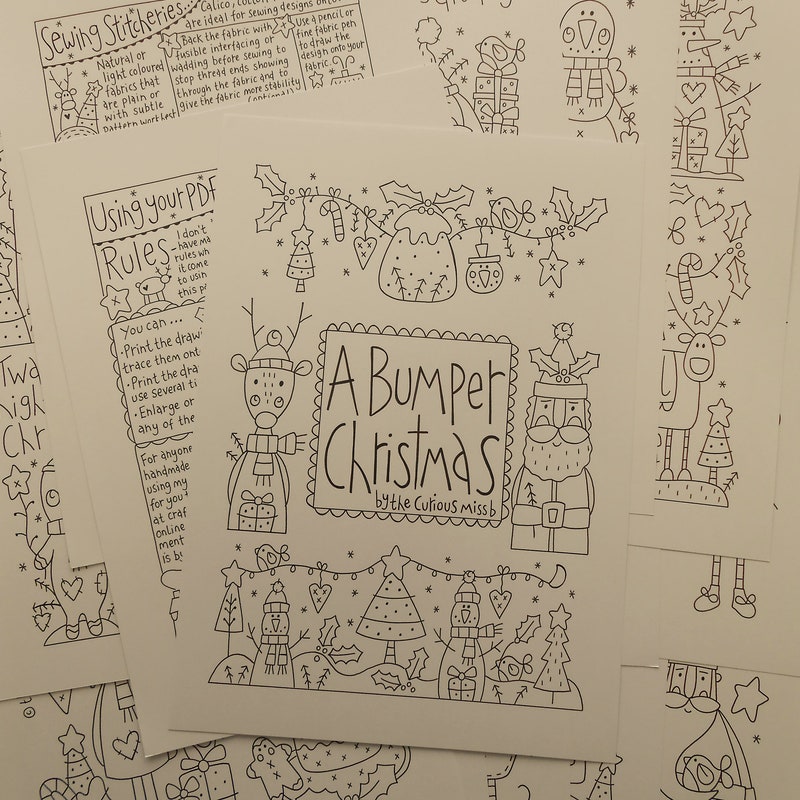 Sewing Stitcheries...
Natural or
light coloured
fabrics that
are plain or
with subtle
pattern work best
Calico, cotton
are ideal for sewing designs onto
Back the fabric with
fusible interfacing or
wadding before sewing to
stop thread ends showing
through the fabric and to
give the fabric more stability
(optional)
Use a pencil or
fine fabric pen
to draw the
design onto your
fabric.
Using your PDF
Rules-
I don't
have ma
rules wh
it come
to usin
this p
You can ...
·Print the drawi
trace them ont
·Print the dra
use several ti
·Enlarge or
any of the
For anyone
handmade
using my
for you
at craf
online
ment
is b
Two
nigh
Chr
A Bumper
Christmas
by the Curious miss b
© t